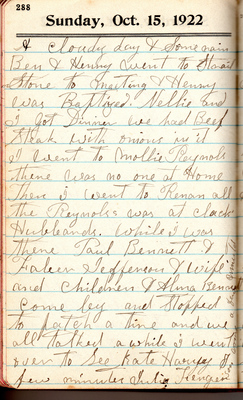 288
Sunday, Oct. 15, 1922
A cloudy day & Some rain
Ben & Henry went to Strait
Stone to meating & Henry
was Baptised Nellie and
I got Dinner we had Beef
Steak with onions in it
I went to Mollie Raynolds
there was no one at Home
Then I went to Renan all
the Reynolss was at clack
Hubleands. While I was
there Paul Bennett &
Jefferson & wife
and children & Alma Bennett
come bey and stopped
to patch a tire and we
all talked a while I went
over to see Kate Harvey a
few minutes